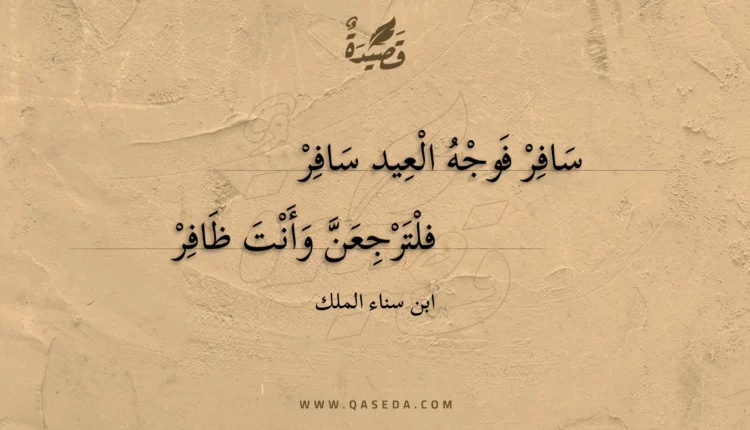 قَصِيْدَةٌ
سَافِرْ فَوجْهُ الْعِيد سَافِرْ
فلْتَرْجِعَنَّ وَأَنْتَ ظَافِرْ
ابن سناء الملك
WWW.QASEDA.COM